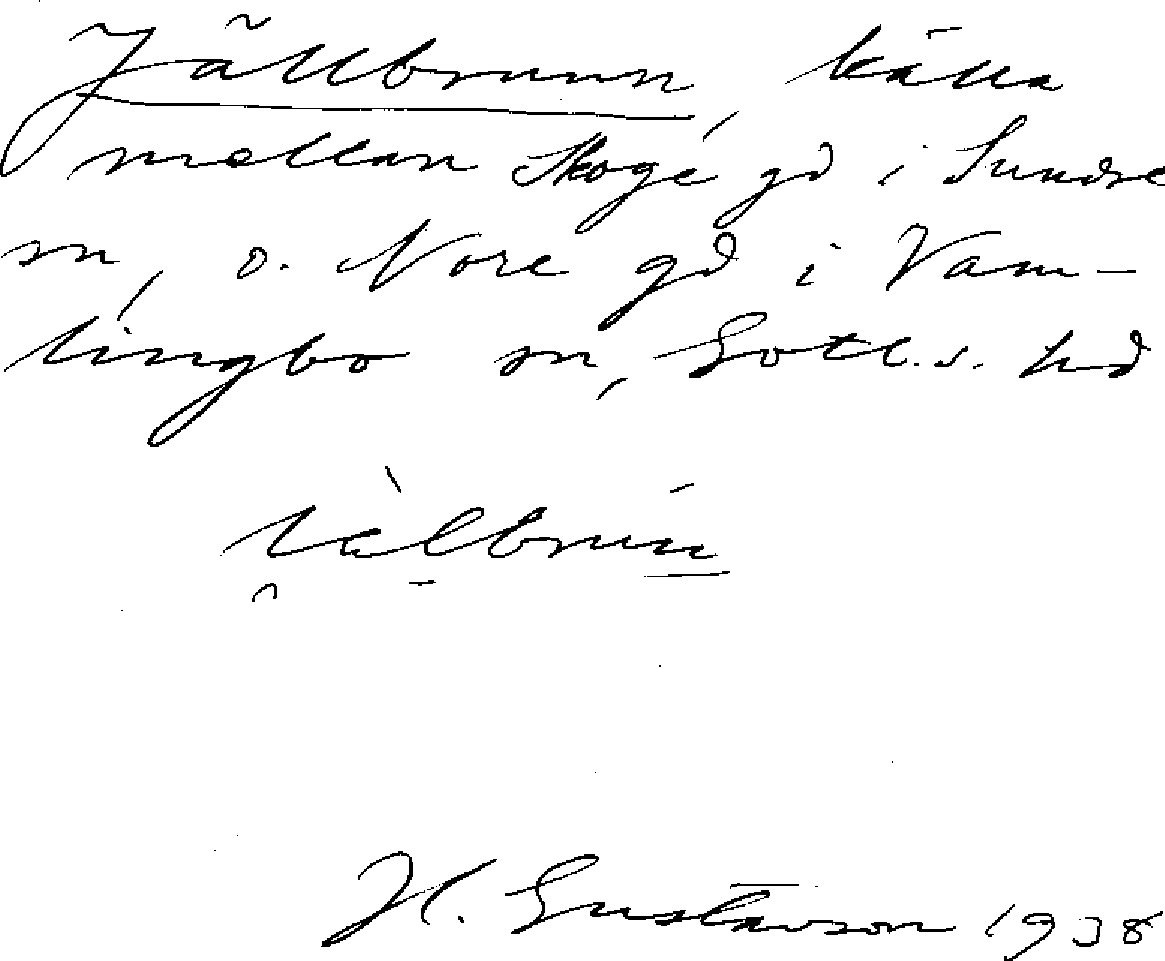 Jällbrunn, källa
mellan Skoge gd i Sundre
sn, o. Nore gd i Vam-
lingbo sn, Gotl. s. hd
H. Gustavson 1938